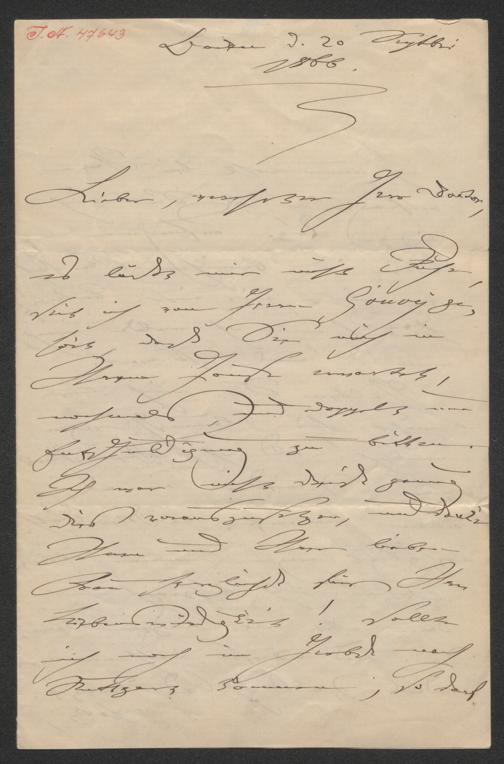 J.N. 47643
Baden d. 20 Septbr
1866.
Lieber, verehrter Herr Doctor,
es läßt mir nicht Ruhe,
seit ich von Herrn Gouvy ge,
hört, daß Sie mich in
Ihrem Hause erwartet,
nochmals, und doppelt um
Entschuldigung zu bitten.
Ich war nicht dreist genug
dies vorauszusetzen, und danke
Ihnen und Ihrer lieben
Frau herzlichst für Ihre
Liebenswürdigkeit! Sollte
ich noch im Herbst nach
Stuttgart kommen, so darf